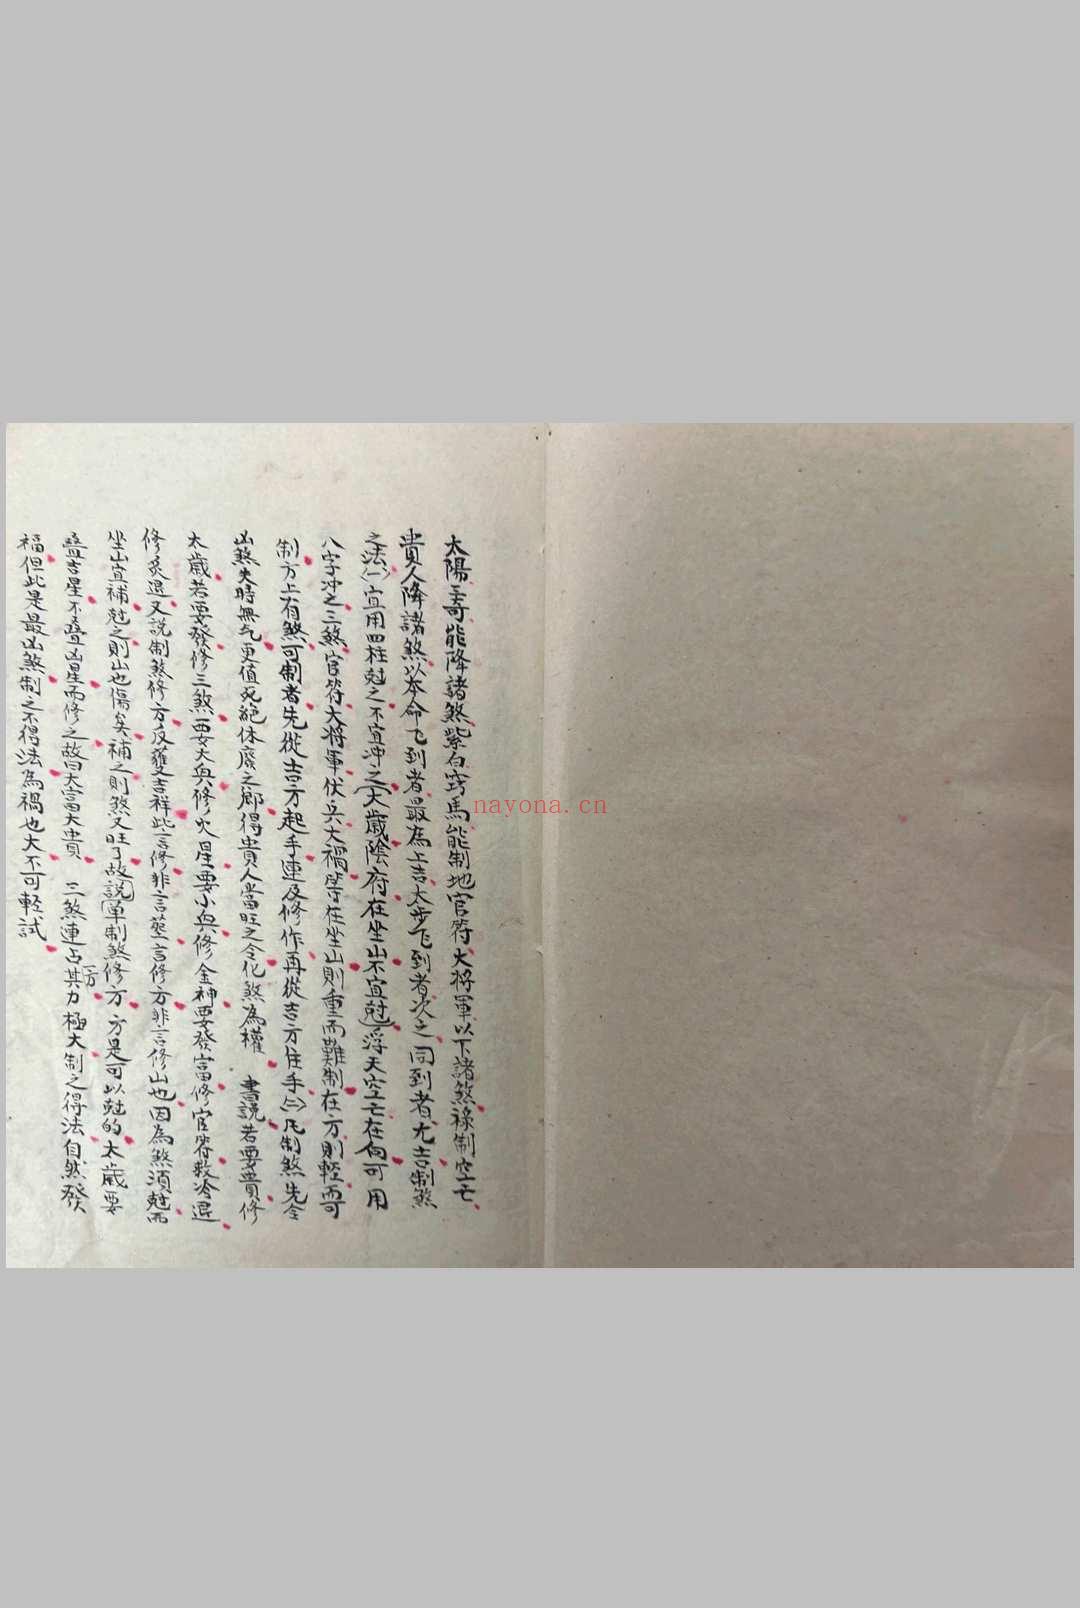 太陽三奇能降諸煞紫白竅馬能制地官符大将軍以下諸煞祿制空亡
貴人降諸煞以本命飞到者最為上吉太歩飞到者次之同到者尤吉制煞
之法㈠宜用四柱尅之不宜冲之(大歲陰府在坐山不宜尅)浮天空亡在向可用
八字冲之三煞官符大将軍伏兵大禍等在坐山則重而難制在方則輕而可
制方上有煞可制者先從吉方起手連及修作再從吉方住手㈡凡制煞先令
凶煞失時無气更值死絕休廢之鄉得貴人當旺之令化煞為權 書説若要貴修
太歲若要發修三煞要大與修火星要小與修金神要發富修官符救冷退
修炙退又説制煞修方反獲吉祥此言修非言塟言修方非言修山也因為煞須尅而
坐山宜補尅之則山也傷矣補之則煞又旺了故説(单制煞修方方是可以尅的太歲要
叠吉星不叠凶星而修之故曰大富大貴 三煞連占一方其力極大制之得法自然發
福但此是最凶煞制之不得法為禍也大不可輕試
nayona.cn